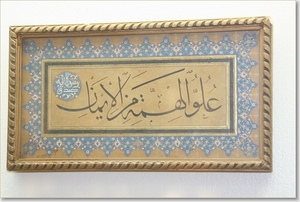 علو الهمة من الإيمان